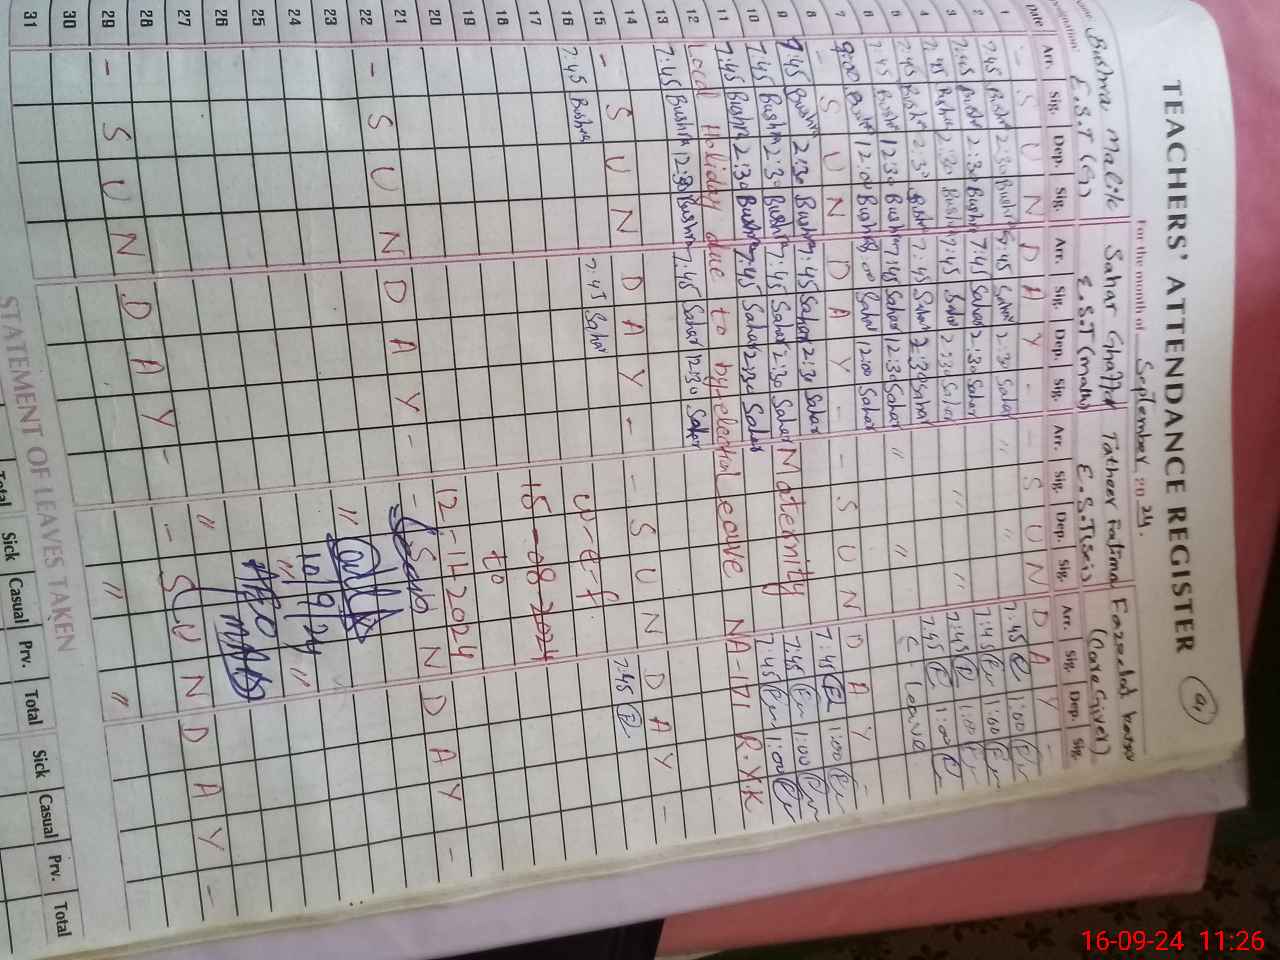 TEACHERS' ATTENDANCE REGISTER
For the month of September 2024.
Name: Bushra Malik Sahar Ghaffar Tatheer Fatima
Designation: E.S.T (G) E.S.T (math) (Care Giver)
Date Arr. Sig. Dep. Sig. Arr. Sig. Dep. Sig. Arr. Sig. Dep. Sig. Arr. Sig. Dep. Sig.
1 - S U N D A Y - - S U N D A Y -
2 7:45 Bushra 2:30 Bushra 7:45 Sahar 2:30 Sahar " " 7:45 1:00
3 7:45 Bushra 2:30 Bushra 7:45 Sahar 2:30 Sahar 7:45 1:00
4 7:45 Bushra 2:30 Bushra 7:45 Sahar 2:30 Sahar " " 7:45 1:00
5 7:45 Bushra 2:30 Bushra 7:45 Sahar 2:30 Sahar 7:45 1:00
6 7:45 Bushra 12:30 Bushra 7:45 Sahar 12:30 Sahar " " C. Leave
7 8:00 Bushra 12:00 Bushra 8:00 Sahar 12:00 Sahar
8 - S U N D A Y - - S U N D A Y -
9 7:45 Bushra 2:30 Bushra 7:45 Sahar 2:30 Sahar 7:45 1:00
10 7:45 Bushra 2:30 Bushra 7:45 Sahar 2:30 Sahar Maternity 7:45 1:00
11 7:45 Bushra 2:30 Bushra 7:45 Sahar 2:30 Sahar 7:45 1:00
12 Local Holiday due to by-election Leave NA-171 R.Y.K
13 7:45 Bushra 12:30 Bushra 7:45 Sahar 12:30 Sahar
14
15 - S U N D A Y - - S U N D A Y -
16 7:45 Bushra 7:45 Sahar w-e-f 7:45
17 15-08-2024
18 to
19
20 12-11-2024
21
22 - S U N D A Y - - S U N D A Y -
23 "
10/9/24
24 " "
25 AEO
26
27 "
28
29 - S U N D A Y - - S U N D A Y -
30 " "
31
STATEMENT OF LEAVES TAKEN
Total Sick Casual Prv. Total Sick Casual Prv. Total
16-09-24 11:26